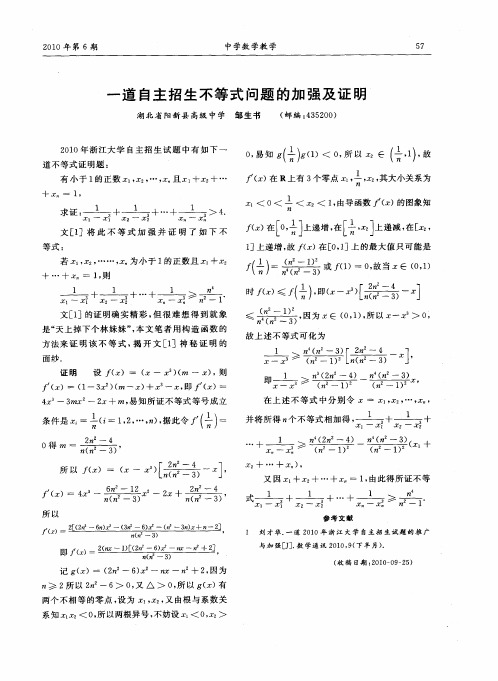 2010年第6期
中学数学教学
57
一道自主招生不等式问题的加强及证明
湖北省阳新县高级中学 邹生书 (邮编:435200)
2010年浙江大学自主招生试题中有如下一
道不等式证明题:
有小于1的正数x₁,x₂,…,xₙ且x₁+x₂+…
+xₙ=1,
求证:1/(x₁-x₁³)+1/(x₂-x₂³)+…+1/(xₙ-xₙ³)>4.
文[1]将此不等式加强并证明了如下不
等式:
若x₁,x₂,……,xₙ为小于1的正数且x₁+x₂
+…+xₙ=1,则
1/(x₁-x₁³)+1/(x₂-x₂³)+…+1/(xₙ-xₙ³)≥n⁴/(n²-1).
文[1]的证明确实精彩,但很难想得到就象
是“天上掉下个林妹妹”,本文笔者用构造函数的
方法来证明该不等式,揭开文[1]神秘证明的
面纱.
证明 设f(x)=(x-x³)(m-x),则
f′(x)=(1-3x²)(m-x)+x³-x,即f′(x)=
4x³-3mx²-2x+m,易知所证不等式等号成立
条件是xᵢ=1/n(i=1,2,…,n),据此令f′(1/n)=
0得m=(2n²-4)/(n(n²-3)),
所以f(x)=(x-x³)[(2n²-4)/(n(n²-3))-x],
f′(x)=4x³-(6n²-12)/(n(n²-3))x²-2x+(2n²-4)/(n(n²-3)),
所以
f′(x)=2[(2n³-6n)x³-(3n²-6)x²-(n³-3n)x+n²-2]/(n(n²-3)),
即f′(x)=2(nx-1)[(2n²-6)x²-nx-n²+2]/(n(n²-3)).
记g(x)=(2n²-6)x²-nx-n²+2,因为
n≥2所以2n²-6>0,又△>0,所以g(x)有
两个不相等的零点,设为x₁,x₂,又由根与系数关
系知x₁x₂<0,所以两根异号,不妨设x₁<0,x₂>
0,易知g(1/n)g(1)<0,所以x₂∈(1/n,1),故
f′(x)在R上有3个零点x₁,1/n,x₂,其大小关系为
x₁<0<1/n<x₂<1,由导函数f′(x)的图象知
f(x)在[0,1/n]上递增,在[1/n,x₂]上递减,在[x₂,
1]上递增,故f(x)在[0,1]上的最大值只可能是
f(1/n)=(n²-1)²/(n⁴(n²-3))或f(1)=0,故当x∈(0,1)
时f(x)≤f(1/n),即(x-x³)[(2n²-4)/(n(n²-3))-x]
≤(n²-1)²/(n⁴(n²-3)),因为x∈(0,1),所以x-x³>0,
故上述不等式可化为
1/(x-x³)≥n⁴(n²-3)/(n²-1)²[(2n²-4)/(n(n²-3))-x],
即1/(x-x³)≥n³(2n²-4)/(n²-1)²-n⁴(n²-3)/(n²-1)²x,
在上述不等式中分别令x=x₁,x₂,…,xₙ,
并将所得n个不等式相加得,1/(x₁-x₁³)+1/(x₂-x₂³)+
…+1/(xₙ-xₙ³)≥n⁴(2n²-4)/(n²-1)²-n⁴(n²-3)/(n²-1)²(x₁+
x₂+…+xₙ),
又因x₁+x₂+…+xₙ=1,由此得所证不等
式1/(x₁-x₁³)+1/(x₂-x₂³)+…+1/(xₙ-xₙ³)≥n⁴/(n²-1).
参考文献
1 刘才华.一道2010年浙江大学自主招生试题的推广
与加强[J].数学通讯2010,9(下半月).
(收稿日期:2010-09-25)